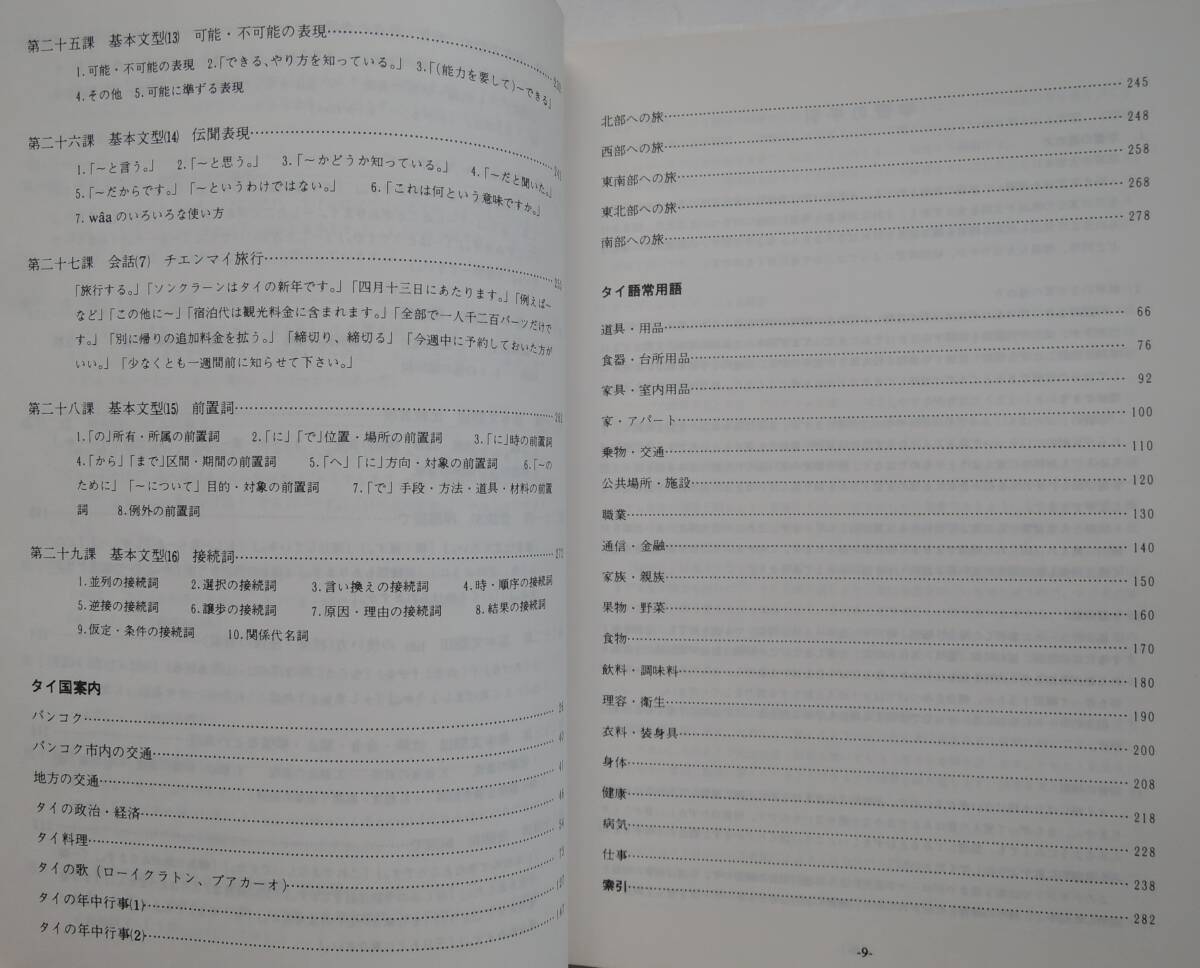 第二十五課 基本文型(13) 可能・不可能の表現
1.可能・不可能の表現 2.「できる、やり方を知っている。」 3.「(能力を要して)～できる」
4.その他 5.可能に準ずる表現
第二十六課 基本文型(14) 伝聞表現
1.「～と言う。」 2.「～と思う。」 3.「～かどうか知っている。」 4.「～だと聞いた。」
5.「～だからです。」「～というわけではない。」 6.「これは何という意味ですか。」
7. wâaのいろいろな使い方
第二十七課 会話(7) チエンマイ旅行
「旅行する。」「ソンクラーンはタイの新年です。」「四月十三日にあたります。」「例えば～
など」「この他に～」「宿泊代は観光料金に含まれます。」「全部で一人千二百バーツだけで
す。」「別に帰りの追加料金を払う。」「締切り、締切る」「今週中に予約しておいた方が
いい。」「少なくとも一週間前に知らせて下さい。」
第二十八課 基本文型(15) 前置詞
1.「の」所有・所属の前置詞 2.「に」「で」位置・場所の前置詞 3.「に」時の前置詞
4.「から」「まで」区間・期間の前置詞 5.「へ」「に」方向・対象の前置詞 6.「～の
ために」「～について」目的・対象の前置詞 7.「で」手段・方法・道具・材料の前置
詞 8.例外の前置詞
第二十九課 基本文型(16) 接続詞
1.並列の接続詞 2.選択の接続詞 3.言い換えの接続詞 4.時・順序の接続詞
5.逆接の接続詞 6.譲歩の接続詞 7.原因・理由の接続詞 8.結果の接続詞
9.仮定・条件の接続詞 10.関係代名詞
タイ国案内
バンコク
バンコク市内の交通
地方の交通
タイの政治・経済
タイ料理
タイの歌(ローイクラトン、ブアカーオ)
タイの年中行事(1)
タイの年中行事(2)
北部への旅 245
西部への旅 248
東南部への旅 258
東北部への旅 268
南部への旅 278
タイ語常用語
道具・用品 66
食器・台所用品 76
家具・室内用品 92
家・アパート 100
乗物・交通 110
公共場所・施設 120
職業 130
通信・金融 140
家族・親族 150
果物・野菜 160
食物 170
飲料・調味料 180
理容・衛生 190
衣料・装身具 200
身体 208
健康 218
病気 228
仕事 238
索引 282
-9-